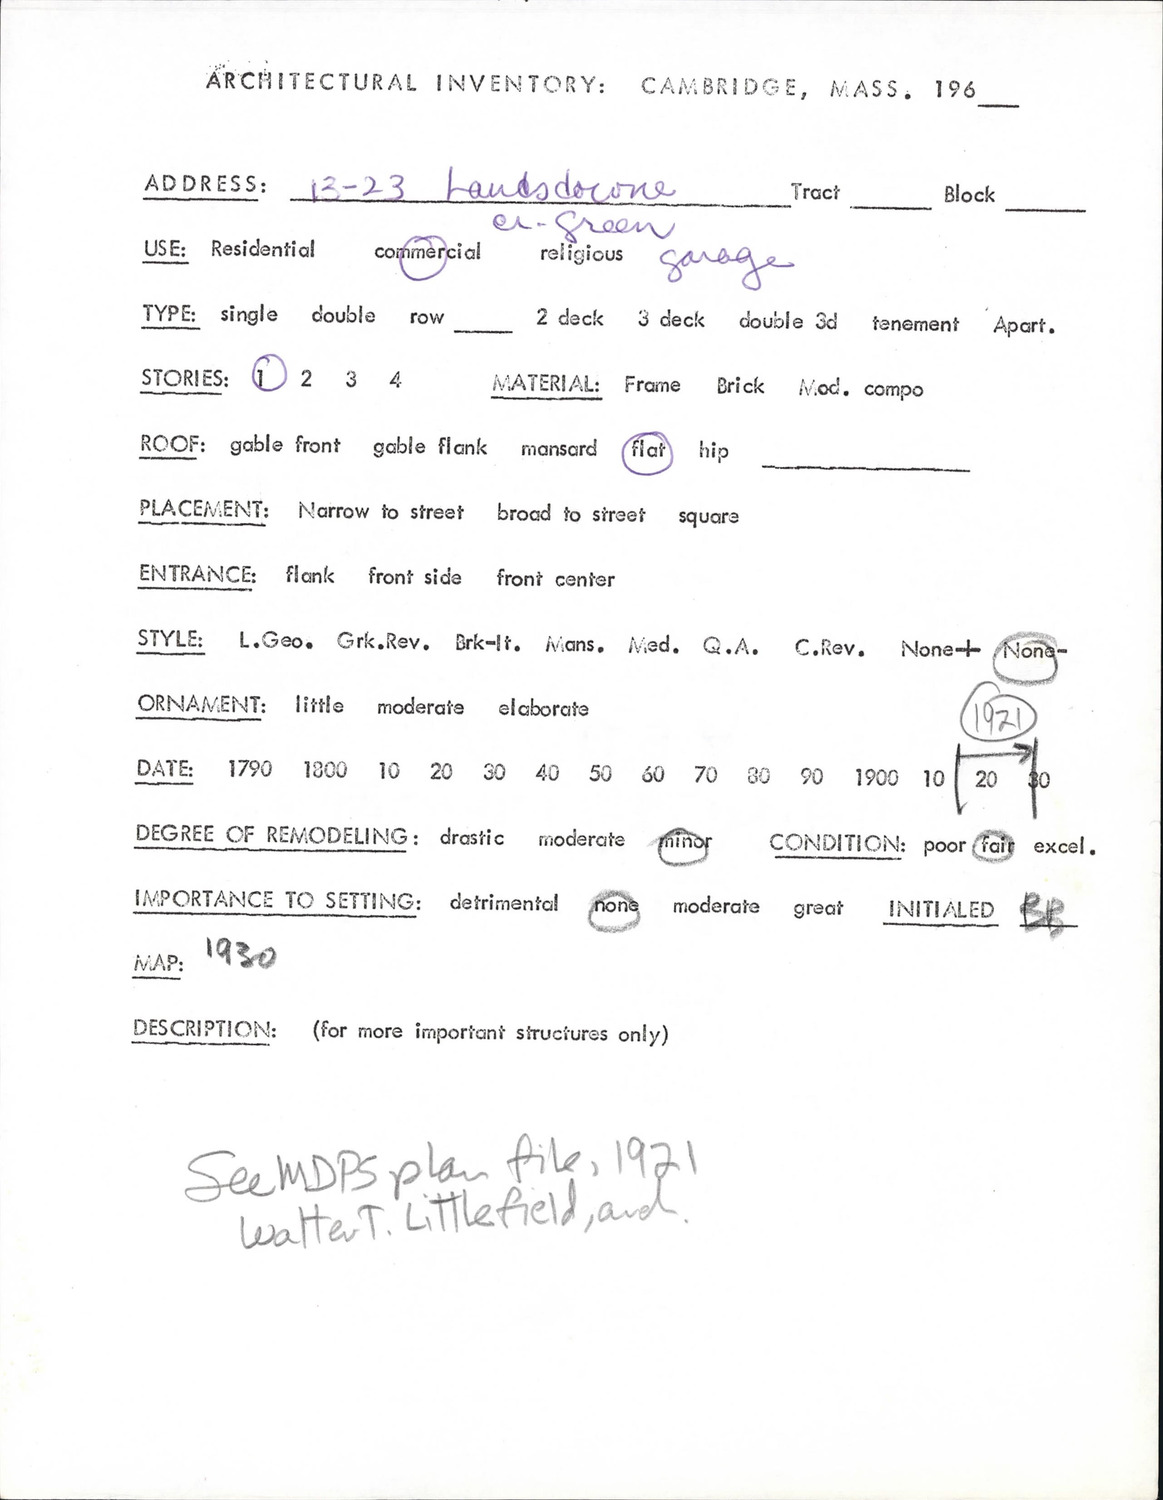 ARCHITECTURAL INVENTORY: CAMBRIDGE, MASS. 196__
ADDRESS: 13-23 Landsdowne Tract ____ Block ____
cr-Green
USE: Residential commercial religious garage
TYPE: single double row ____ 2 deck 3 deck double 3d tenement Apart.
STORIES: 1 2 3 4 MATERIAL: Frame Brick Mod. compo
ROOF: gable front gable flank mansard flat hip ____
PLACEMENT: Narrow to street broad to street square
ENTRANCE: flank front side front center
STYLE: L.Geo. Grk.Rev. Brk-It. Mans. Med. Q.A. C.Rev. None+ None-
ORNAMENT: little moderate elaborate
1921
DATE: 1790 1800 10 20 30 40 50 60 70 80 90 1900 10 20 30
DEGREE OF REMODELING: drastic moderate minor CONDITION: poor fair excel.
IMPORTANCE TO SETTING: detrimental none moderate great INITIALED BB
MAP: 1930
DESCRIPTION: (for more important structures only)
See MDPS plan file, 1921
Walter T. Littlefield, arch.